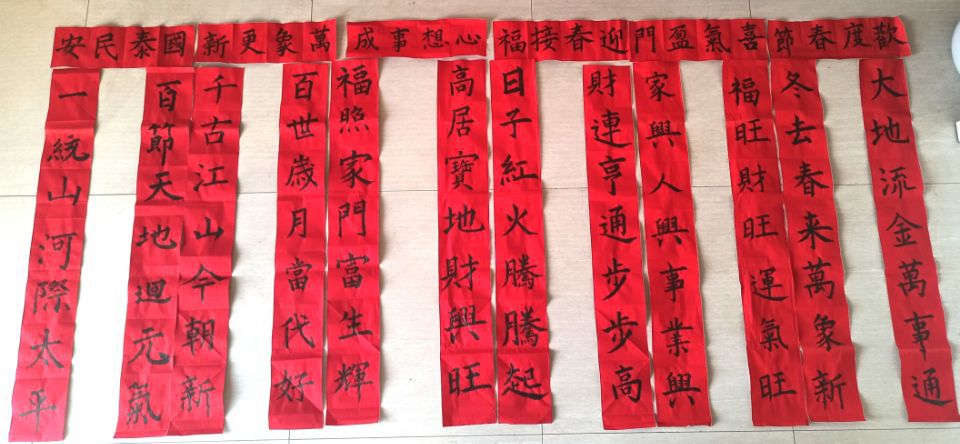 歡度春節
喜氣盈門
迎春接福
心想事成
萬象更新
國泰民安
大地流金萬事通
冬去春来萬象新
福旺財旺運氣旺
家興人興事業興
財連亨通步步高
日子紅火騰騰起
高居寶地財興旺
福照家門富生輝
百世歲月當代好
千古江山今朝新
百節天地迴元氣
一統山河際太平